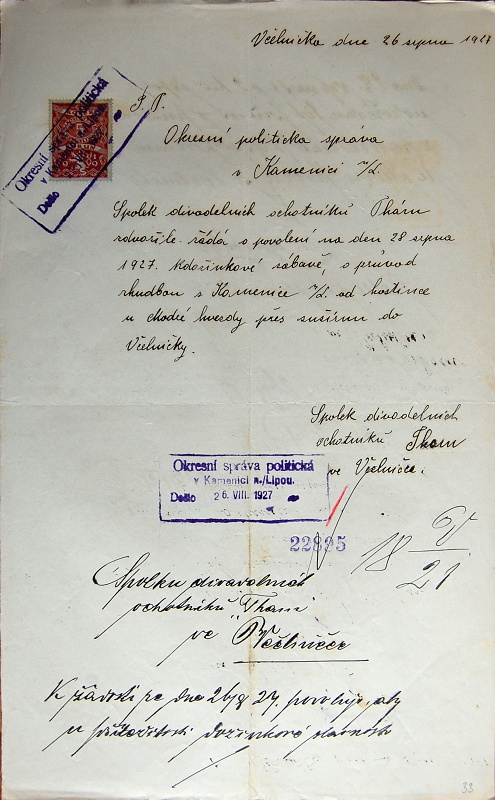 Včelnička dne 26 srpna 1927
P. T.
Okresní politicka správa
v Kamenici n/L.
Okresní správa politická
v Kamenici
Došlo
Spolek divadelních ochotníků Thám
zdvořile žádá o povolení na den 28 srpna
1927. kdožinkové zábavě, o průvod
shudbou s Kamenice n/L. od hostince
u modré hvezdy přes sušírnu do
Včelničky.
Spolek divadelních
ochotníků Tham
ve Včelničce.
Okresní správa politická
v Kamenici n./Lipou.
Došlo 26. VIII. 1927
22895
18 V/21
Spolku divadelních
ochotníků "Tham"
ve Včelničce
K žádosti ze dne 26/8 27. povoluje, aby
u příležitosti dožinkové slavnosti
33